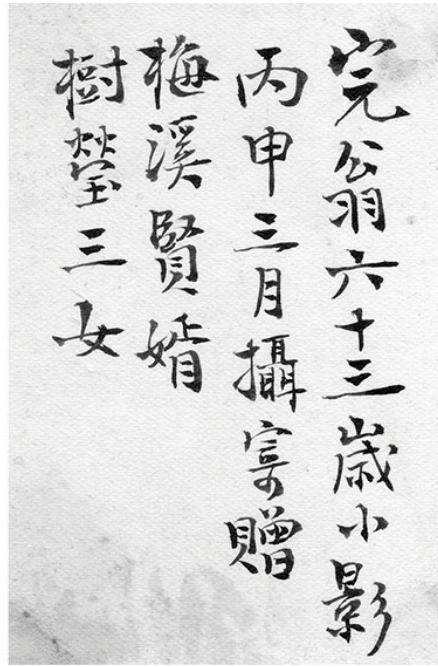 完翁六十三歲小影
丙申三月攝寄贈
梅溪賢婿
樹瑩三女